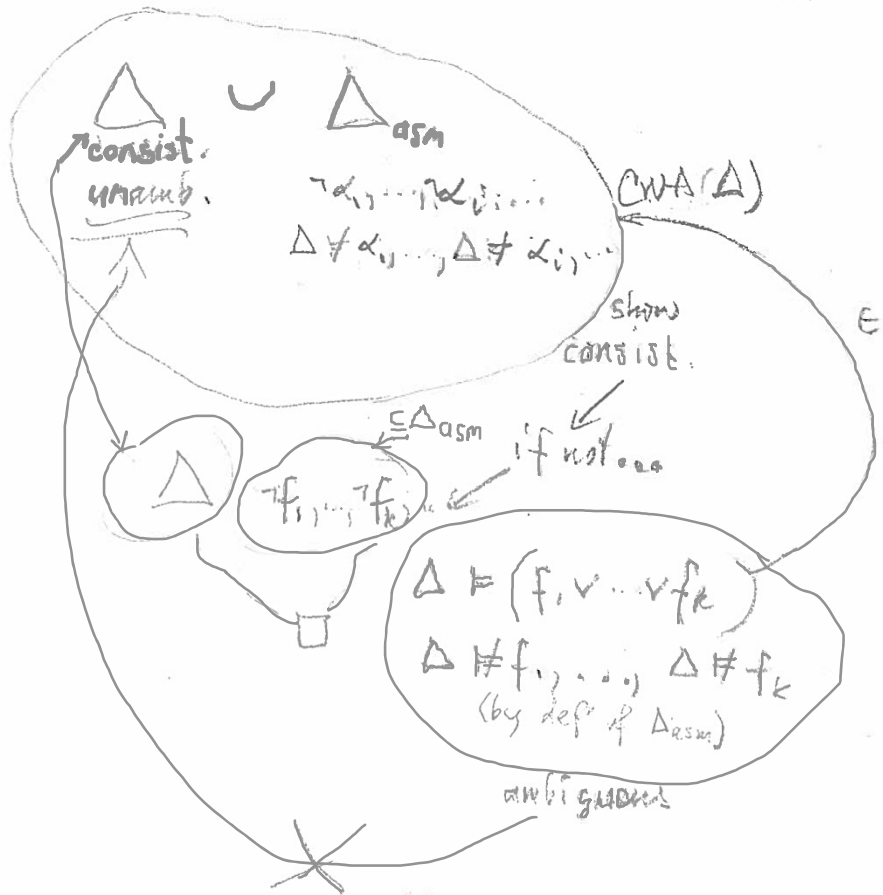 Δ ∪ Δasm
consist.
unamb.
¬α₁,...,¬αⱼ,...
Δ ⊭ α₁,...,Δ ⊭ αⱼ,...
CWA(Δ)
∈
show
consist.
if not...
⊆Δasm
Δ
¬f₁,...,¬fₖ,..
□
Δ ⊨ (f₁ ∨ ... ∨ fₖ)
Δ ⊭ f₁,..., Δ ⊭ fₖ
(by def of Δasm)
ambiguous